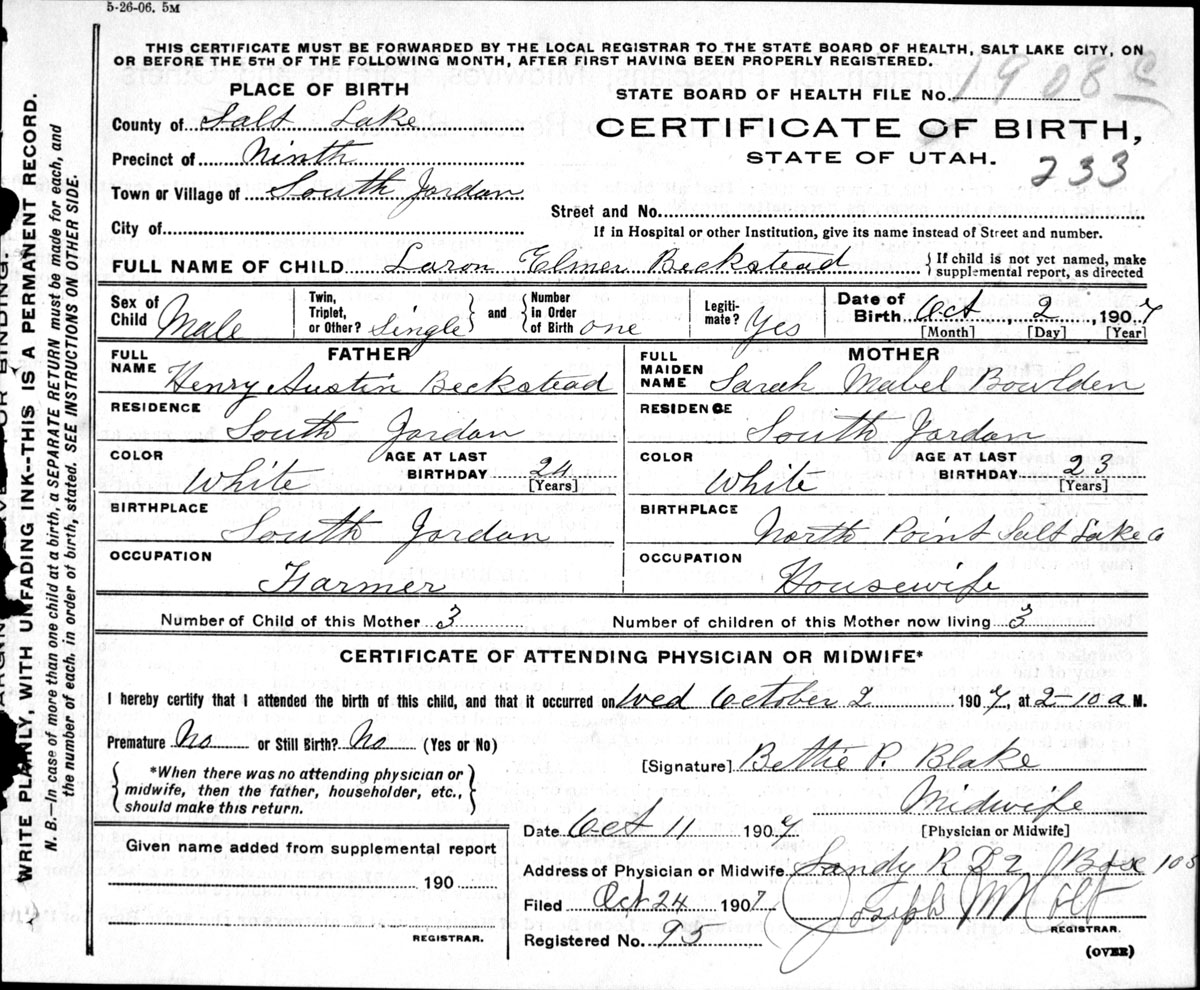 5-26-06. 5M
THIS CERTIFICATE MUST BE FORWARDED BY THE LOCAL REGISTRAR TO THE STATE BOARD OF HEALTH, SALT LAKE CITY, ON
OR BEFORE THE 5TH OF THE FOLLOWING MONTH, AFTER FIRST HAVING BEEN PROPERLY REGISTERED.
PLACE OF BIRTH
County of Salt Lake
Precinct of Ninth
Town or Village of South Jordan
City of
STATE BOARD OF HEALTH FILE No. 1908
CERTIFICATE OF BIRTH,
STATE OF UTAH.
233
Street and No.
If in Hospital or other Institution, give its name instead of Street and number.
FULL NAME OF CHILD Laron Elmer Beckstead
{ If child is not yet named, make
supplemental report, as directed
Sex of Child Male
Twin, Triplet, or Other? Single
and
Number in Order of Birth one
Legiti-mate? Yes
Date of Birth Oct 2, 1907
[Month] [Day] [Year]
FATHER
FULL NAME Henry Austin Beckstead
RESIDENCE South Jordan
COLOR White AGE AT LAST BIRTHDAY 24
[Years]
BIRTHPLACE South Jordan
OCCUPATION Farmer
MOTHER
FULL MAIDEN NAME Sarah Mabel Bowlden
RESIDENCE South Jordan
COLOR White AGE AT LAST BIRTHDAY 23
[Years]
BIRTHPLACE North Point Salt Lake Co
OCCUPATION Housewife
Number of Child of this Mother 3 Number of children of this Mother now living 3
CERTIFICATE OF ATTENDING PHYSICIAN OR MIDWIFE*
I hereby certify that I attended the birth of this child, and that it occurred on Wed October 2 1907, at 2-10 a M.
Premature No or Still Birth? No (Yes or No)
{ *When there was no attending physician or
midwife, then the father, householder, etc.,
should make this return. }
[Signature] Bettie P. Blake
Midwife
[Physician or Midwife]
Date Oct 11 1907
Address of Physician or Midwife Sandy R D 2 Box 108
Given name added from supplemental report
190
REGISTRAR.
Filed Oct 24 1907 Joseph M Holt
REGISTRAR.
Registered No. 95
(OVER)
WRITE PLAINLY, WITH UNFADING INK--THIS IS A PERMANENT RECORD.
N. B.—In case of more than one child at a birth, a SEPARATE RETURN must be made for each, and
the number of each, in order of birth, stated. SEE INSTRUCTIONS ON OTHER SIDE.
FOR BINDING.